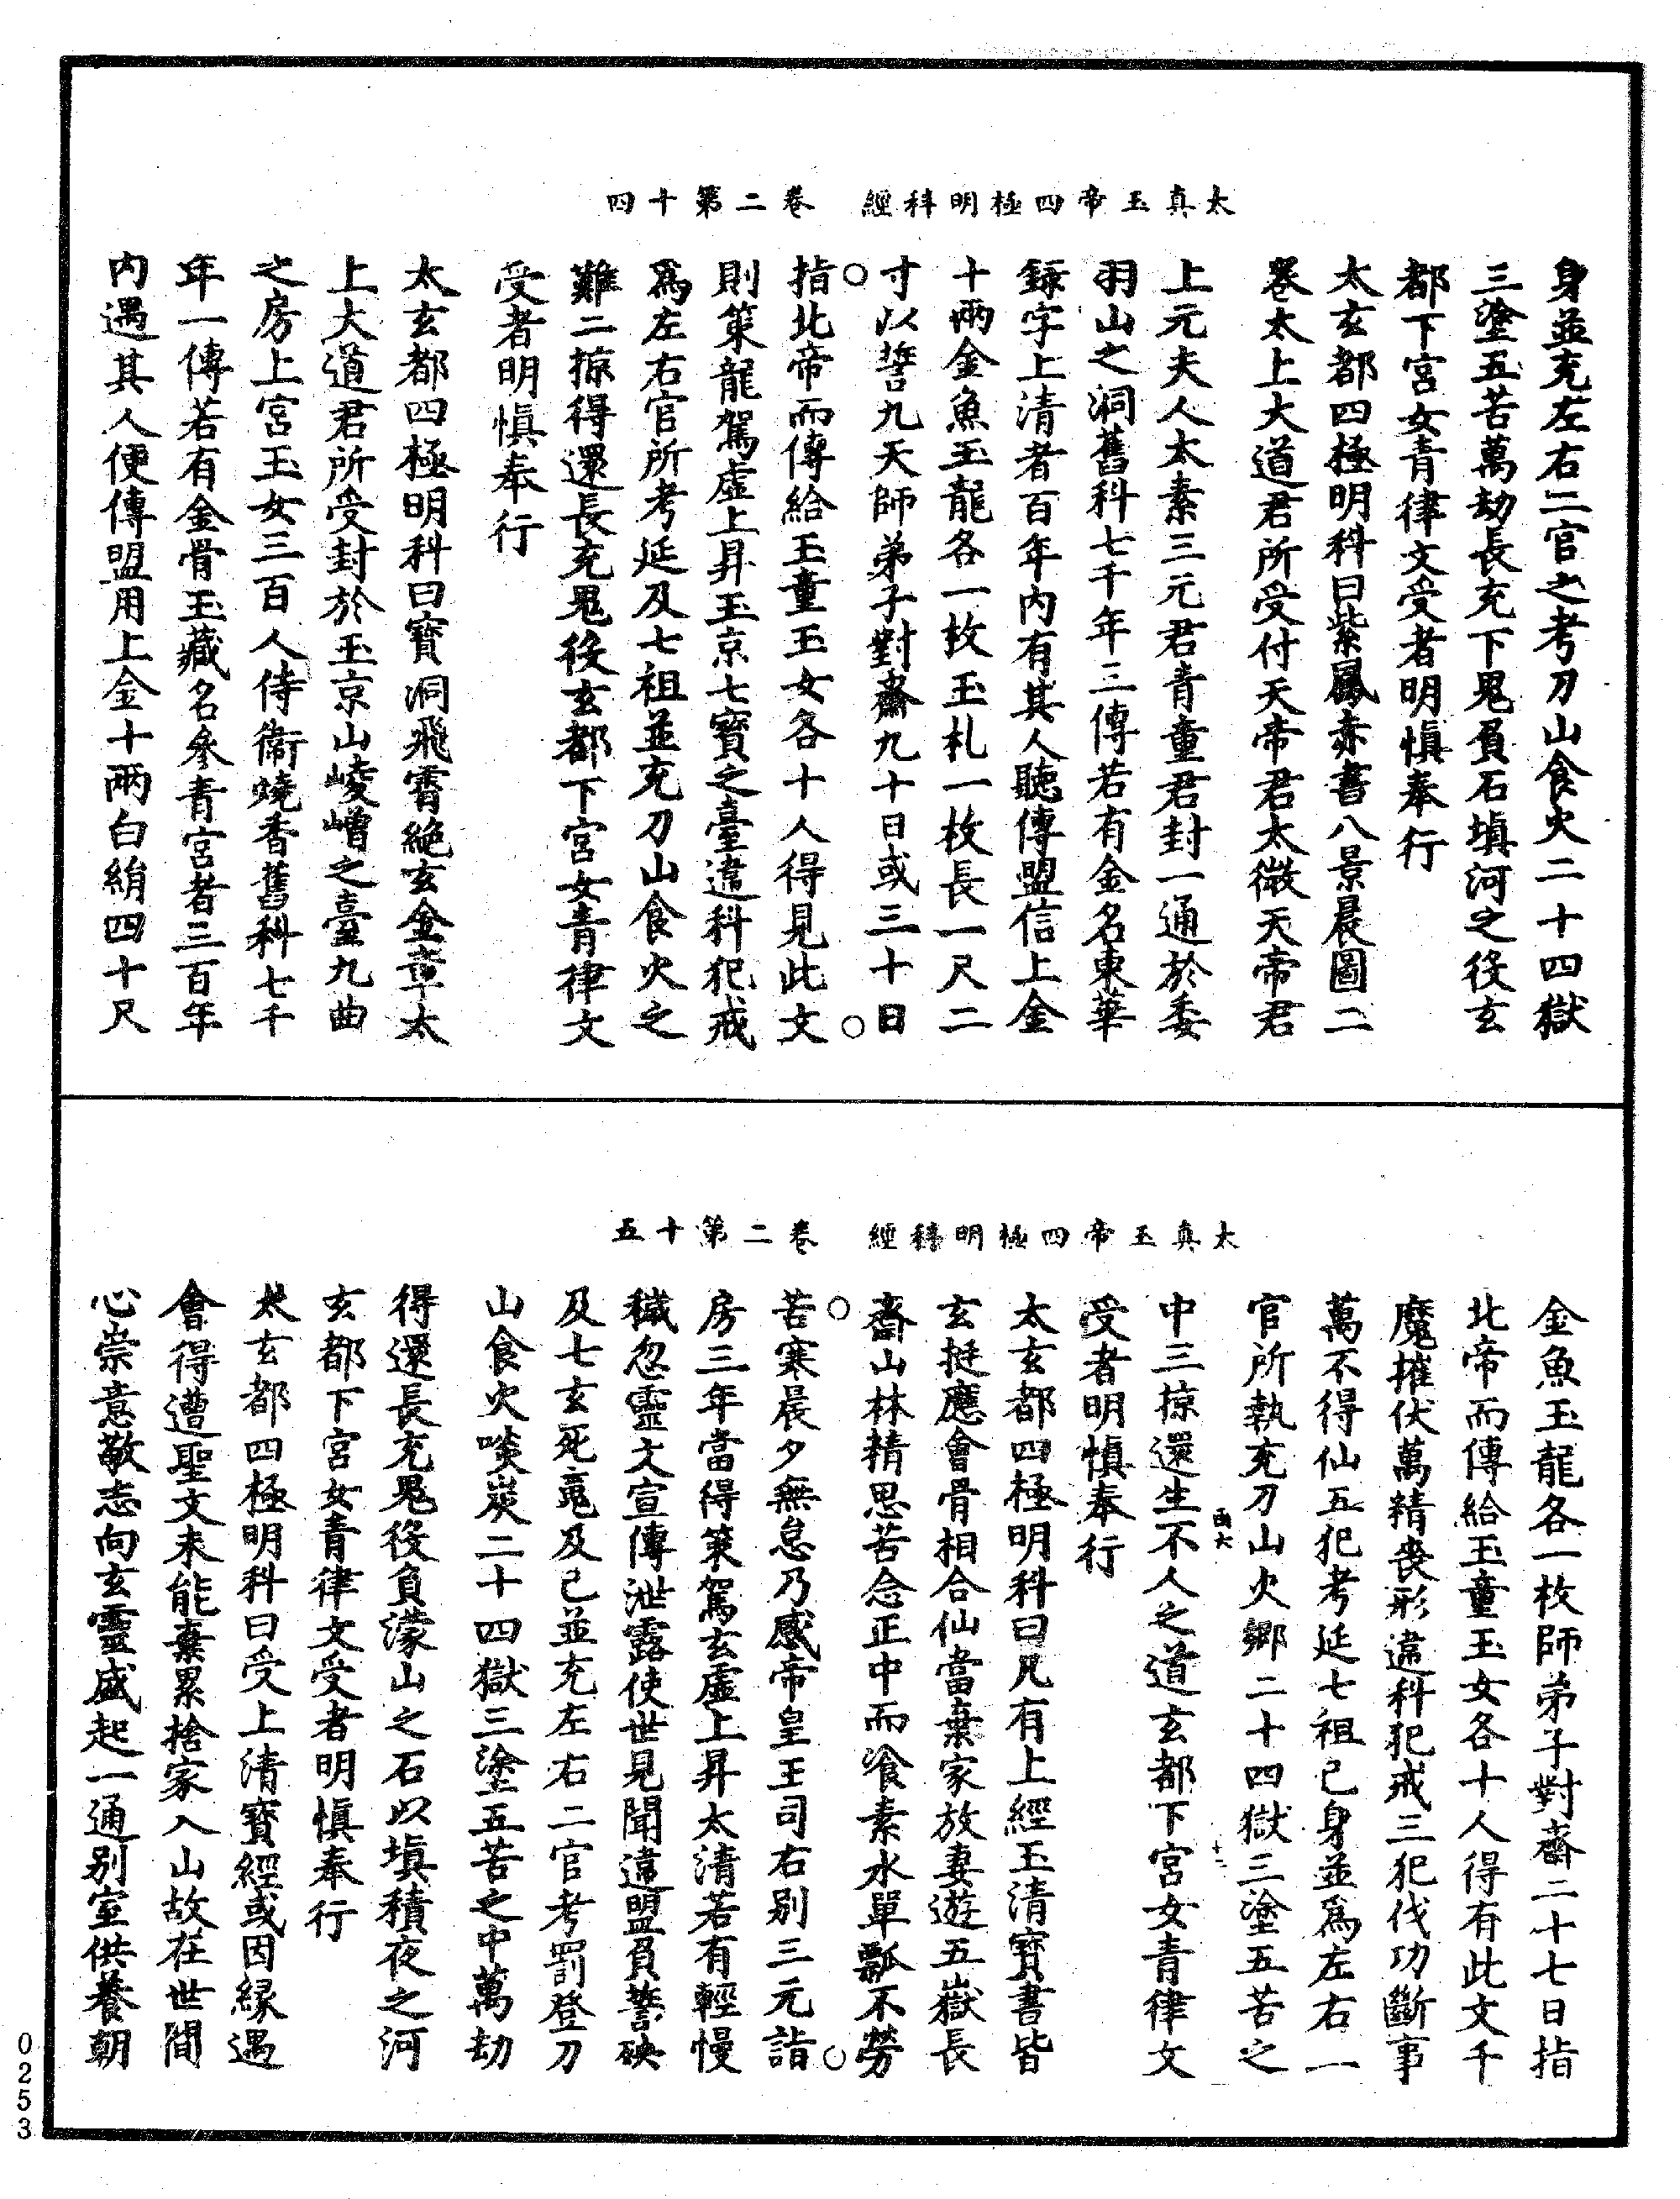 太真玉帝四極明科經　卷二第十四
身並充左右二官之考刀山食火二十四獄
三塗五苦萬劫長充下鬼負石填河之役玄
都下宮女青律文受者明慎奉行
太玄都四極明科曰紫鳳赤書八景晨圖二
卷太上大道君所受付天帝君太微天帝君
上元夫人太素三元君青童君封一通於委
羽山之洞舊科七千年三傳若有金名東華
錄字上清者百年內有其人聽傳盟信上金
十兩金魚玉龍各一枚玉札一枚長一尺二
寸以誓九天師弟子對齋九十日或三十日
指北帝而傳給玉童玉女各十人得見此文
則策龍駕虛上昇玉京七寶之臺違科犯戒
為左右官所考延及七祖並充刀山食火之
難二掠得還長充鬼役玄都下宮女青律文
受者明慎奉行
太玄都四極明科曰寶洞飛霄絕玄金章太
上大道君所受封於玉京山崚嶒之臺九曲
之房上宮玉女三百人侍衞燒香舊科七千
年一傳若有金骨玉藏名參青宮者三百年
內遇其人便傳盟用上金十兩白絹四十尺
太真玉帝四極明科經　卷二第十五
金魚玉龍各一枚師弟子對齋二十七日指
北帝而傳給玉童玉女各十人得有此文千
魔摧伏萬精喪形違科犯戒三犯伐功斷事
萬不得仙五犯考延七祖已身並為左右一
官所執充刀山火鄉二十四獄三塗五苦之
中三掠還生不人之道玄都下宮女青律文
受者明慎奉行
太玄都四極明科曰凡有上經玉清寶書皆
玄挺應會骨相合仙當棄家放妻遊五嶽長
齋山林精思苦念正中而飡素水單瓢不勞
苦寒晨夕無怠乃感帝皇玉司右別三元詣
房三年當得策駕玄虛上昇太清若有輕慢
穢忽靈文宣傳泄露使世見聞違盟負誓殃
及七玄死䰟及已並充左右二官考罰登刀
山食火啖炭二十四獄三塗五苦之中萬劫
得還長充鬼役負濛山之石以填積夜之河
玄都下宮女青律文受者明慎奉行
太玄都四極明科曰受上清寶經或因緣遇
會得遭聖文未能棄累捨家入山故在世間
心崇意敬志向玄靈盛起一通別室供養朝
0253